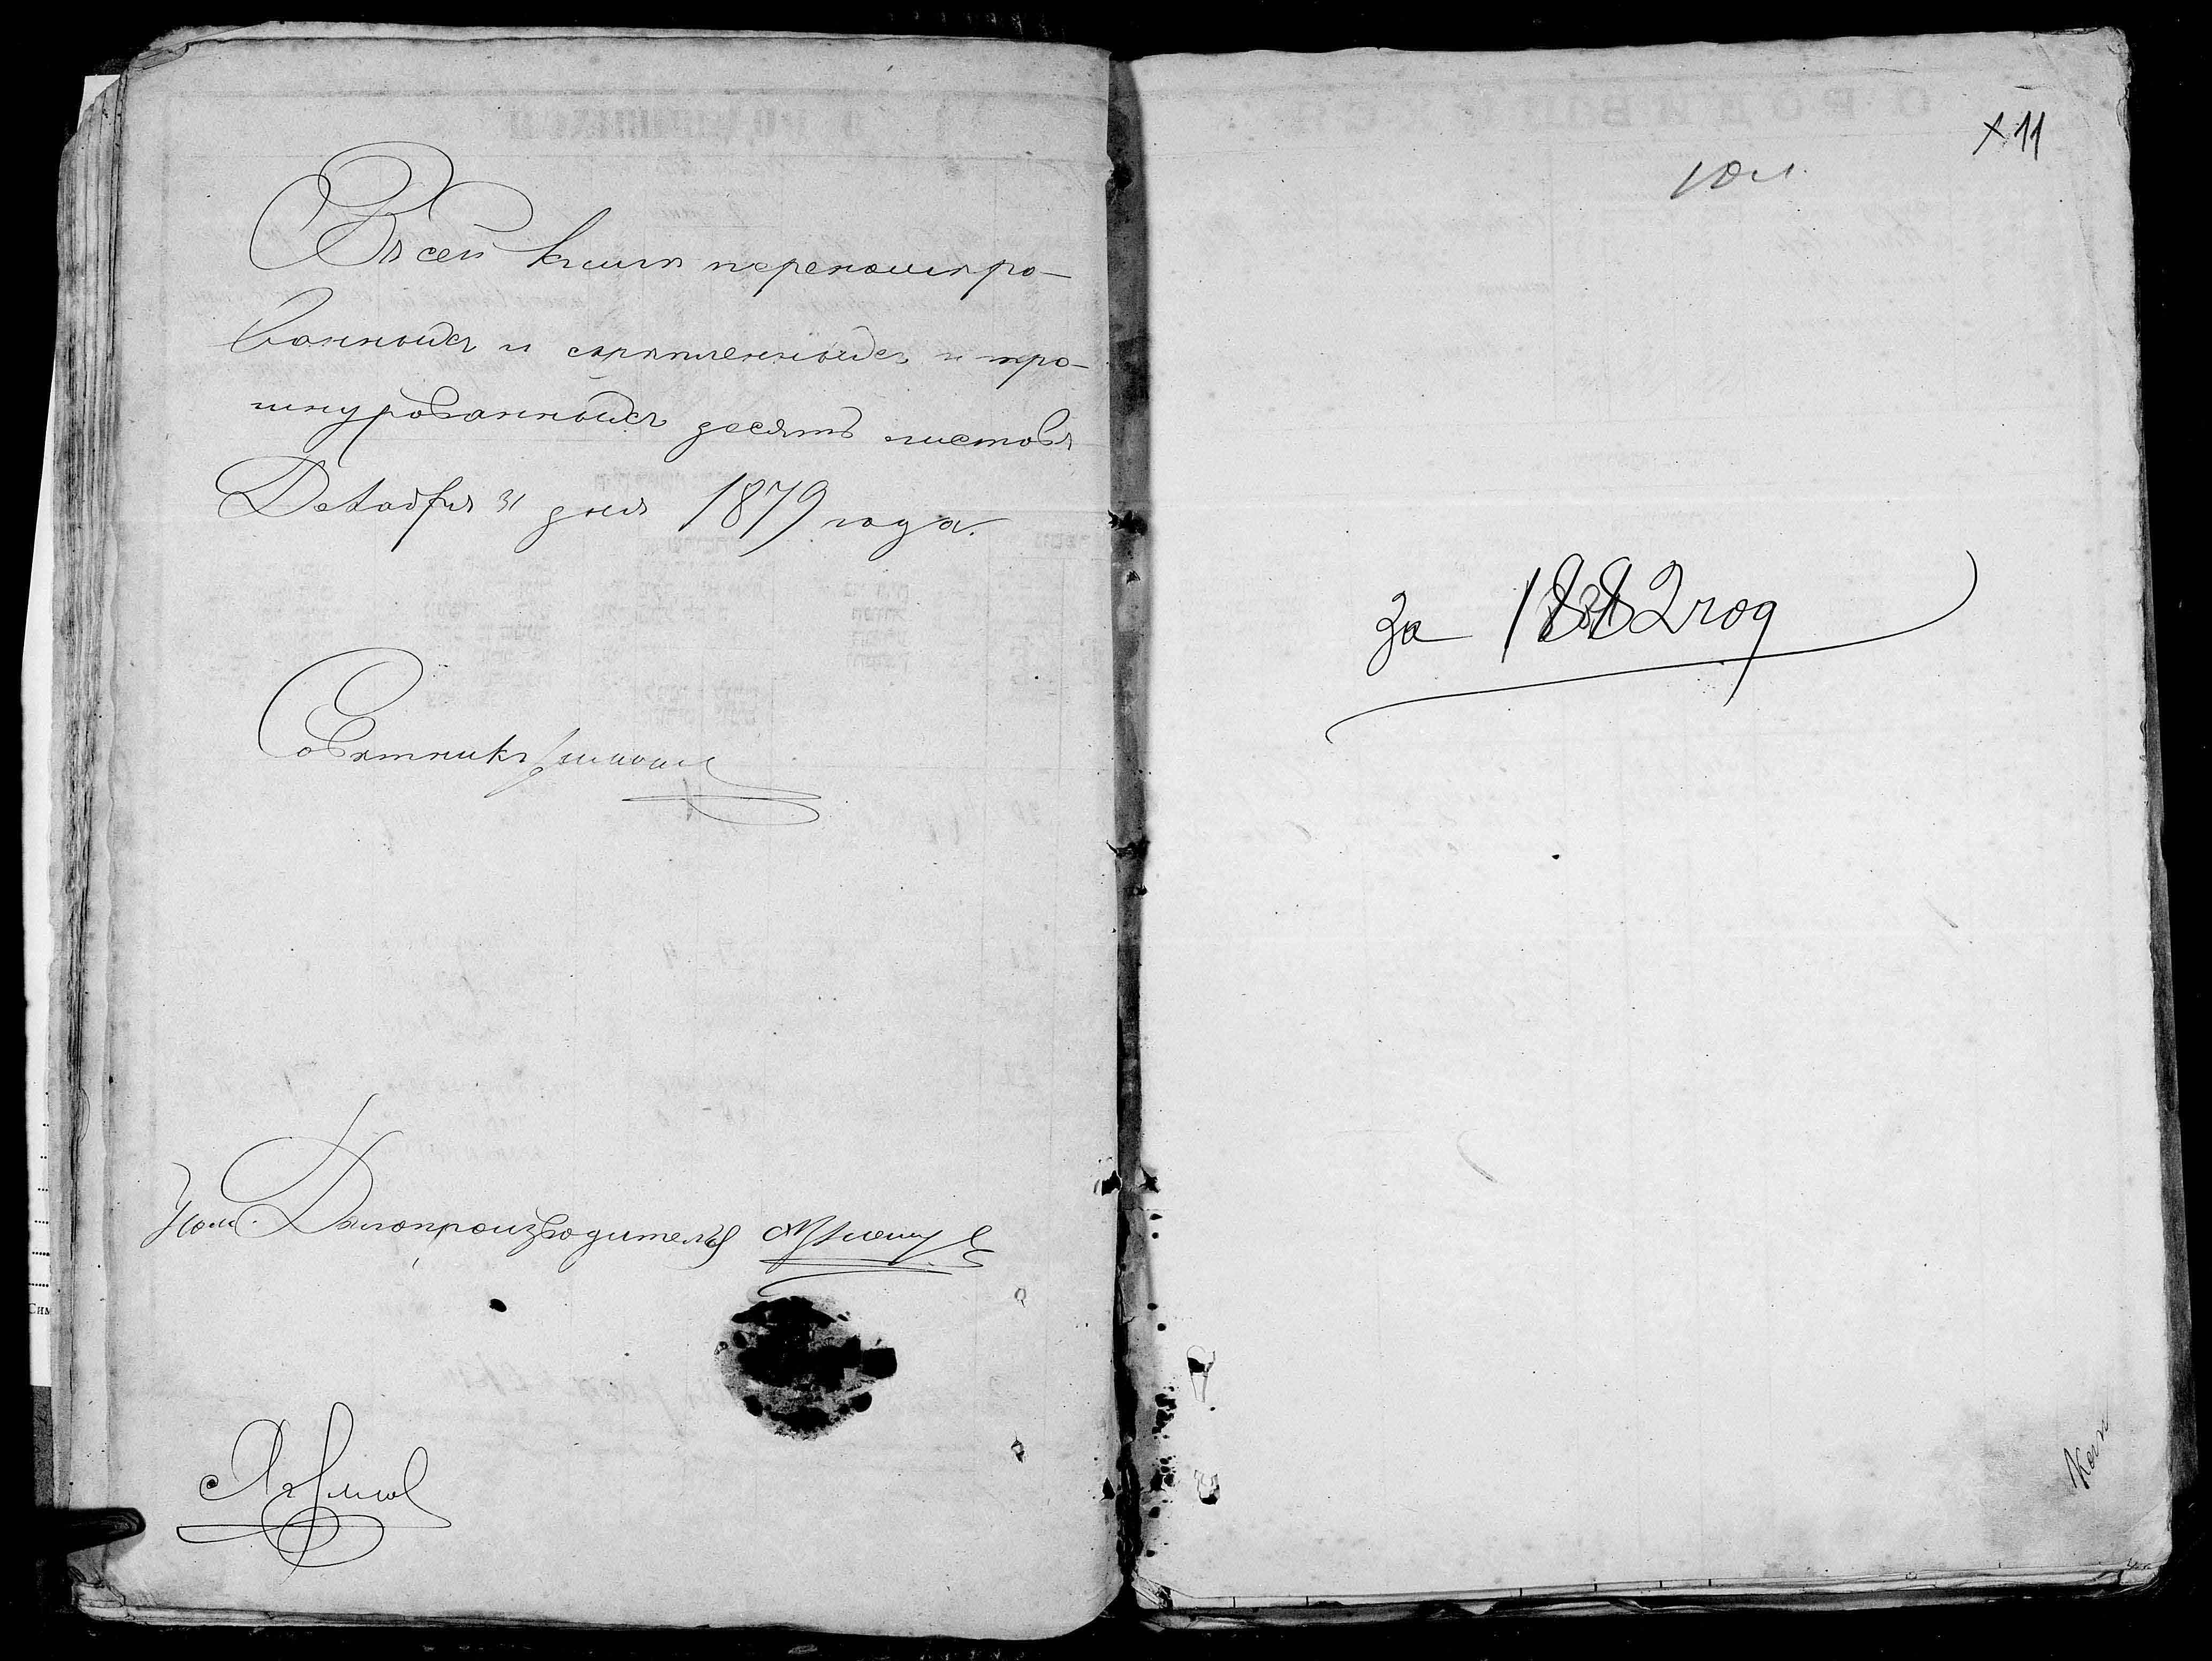 Въ сей книгѣ переномеро-
ванныхъ и скрѣпленныхъ и про-
шнурованныхъ десять листовъ
Декабря 31 дня 1879 года.
Совѣтникъ
Дѣлопроизводитель
× 11
10 л
за 1882 год